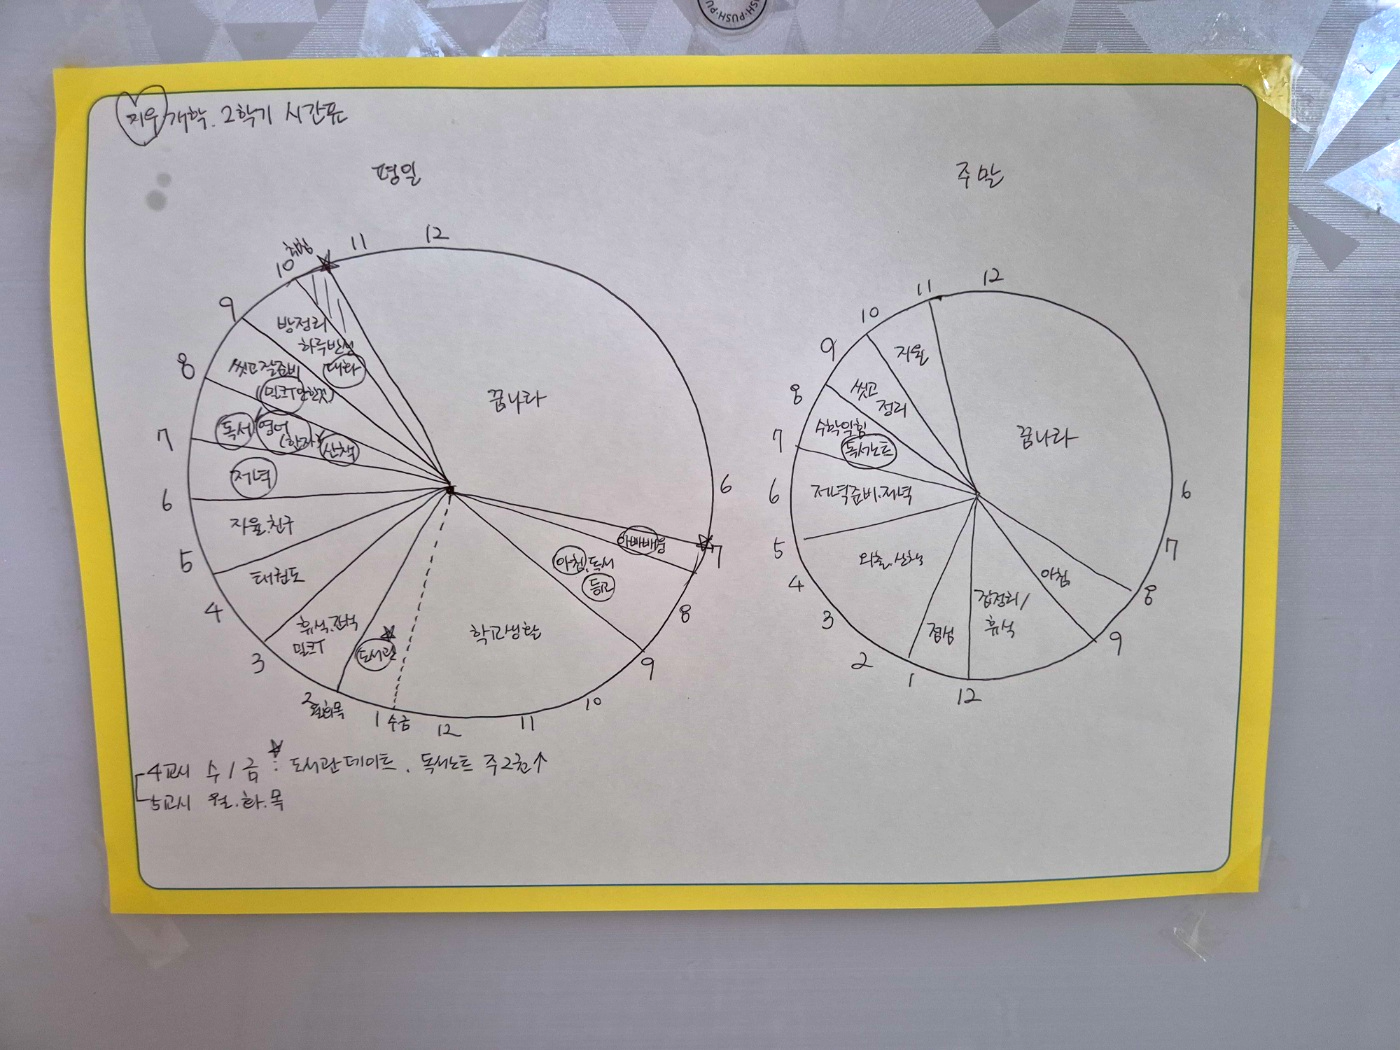 지우 개학. 2학기 시간표
평일
12
11
취침
10
9
8
7
6
5
4
3
2
월화목
1
수금
12
11
10
9
8
7
6
꿈나라
방정리
하루반성
대화
씻고 잘준비
(밀크T 안한것)
독서 영어 (한자) 산책
저녁
자율.친구
태권도
휴식.간식
밀크T
도서관
학교생활
아침.독서
등교
아빠배웅
4교시 수/금 : 도서관데이트. 독서노트 주2권↑
5교시 월.화.목
주말
12
11
10
9
8
7
6
5
4
3
2
1
12
9
8
7
6
꿈나라
자율
씻고
정리
수학익힘
독서노트
저녁준비.저녁
외출.산책
점심
집정리/
휴식
아침
PUSH·PU